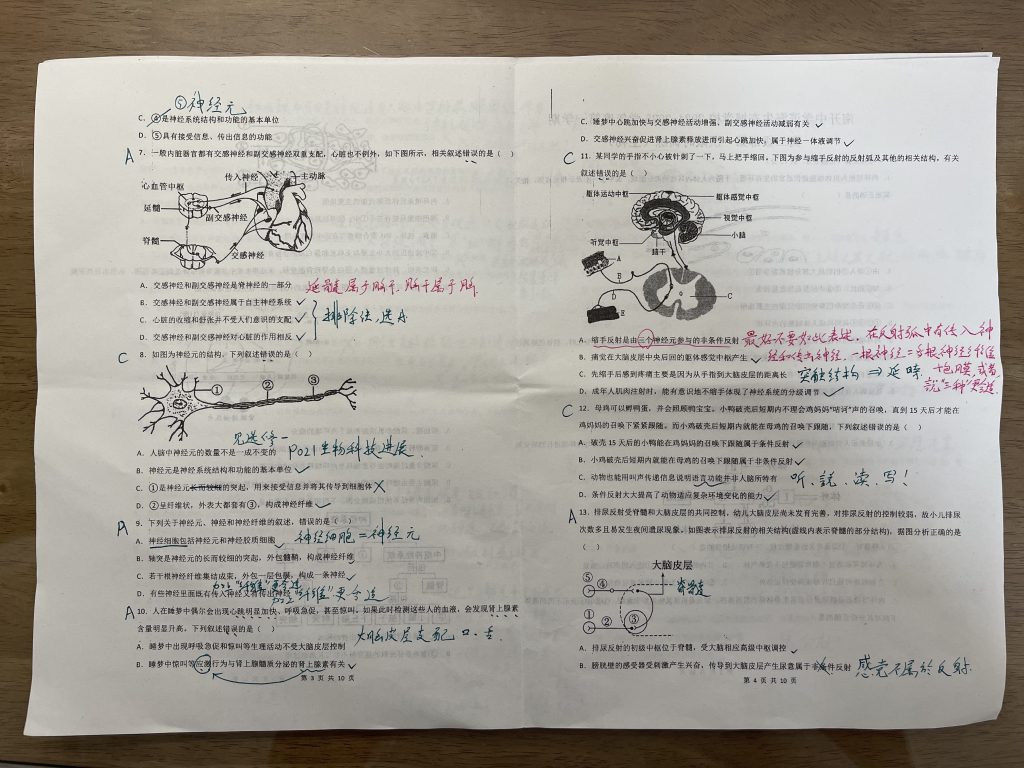 ⑤神经元
C. ④是神经系统结构和功能的基本单位
D. ⑤具有接受信息、传出信息的功能
A 7. 一般内脏器官都有交感神经和副交感神经双重支配，心脏也不例外，如下图所示，相关叙述错误的是（ ）
传入神经
主动脉
心血管中枢
延髓
副交感神经
脊髓
交感神经
A. 交感神经和副交感神经是脊神经的一部分 延髓属于脑干，脑干属于脑.
B. 交感神经和副交感神经属于自主神经系统 ✓
C. 心脏的收缩和舒张并不受人们意识的支配 ✓ 排除法，选A
D. 交感神经和副交感神经对心脏的作用相反 ✓
C 8. 如图为神经元的结构。下列叙述错误的是（ ）
① ② ③
见选修一
A. 人脑中神经元的数量不是一成不变的 P021生物科技进展.
B. 神经元是神经系统结构和功能的基本单位 ✓
C. ①是神经元长而较细的突起，用来接受信息并将其传导到细胞体 X
D. ②呈纤维状，外表大都套有③，构成神经纤维 ✓
A 9. 下列关于神经元、神经和神经纤维的叙述，错误的是（ ）
A. 神经细胞包括神经元和神经胶质细胞 神经细胞=神经元
B. 轴突是神经元的长而较细的突起，外包髓鞘，构成神经纤维 ✓
C. 若干根神经纤维集结成束，外包一层包膜，构成一条神经 ✓
D. 有些神经里面既有传入神经又有传出神经 "纤维"更合适
A 10. 人在睡梦中偶尔会出现心跳明显加快、呼吸急促，甚至惊叫。如果此时检测这些人的血液，会发现肾上腺素
含量明显升高。下列叙述错误的是（ ）
大脑皮层支配口、舌
A. 睡梦中出现呼吸急促和惊叫等生理活动不受大脑皮层控制
B. 睡梦中惊叫等应激行为与肾上腺髓质分泌的肾上腺素有关 ✓
第 3 页 共 10 页
C. 睡梦中心跳加快与交感神经活动增强、副交感神经活动减弱有关 ✓
D. 交感神经兴奋促进肾上腺素释放进而引起心跳加快，属于神经－体液调节 ✓
C 11. 某同学的手指不小心被针刺了一下，马上把手缩回。下图为参与缩手反射的反射弧及其他的相关结构，有关
叙述错误的是（ ）
躯体运动中枢
躯体感觉中枢
视觉中枢
小脑
听觉中枢
脑干
A
B
C
D
E
A. 缩手反射是由三个神经元参与的非条件反射 最好不要如此表达，在反射弧中有传入神
B. 痛觉在大脑皮层中央后回的躯体感觉中枢产生 ✓ 经和传出神经，一根神经=多根神经纤维
C. 先缩手后感到疼痛主要是因为从手指到大脑皮层的距离长 突触结构 ⇒ 延时 +包膜，或者
D. 成年人肌肉注射时，能有意识地不缩手体现了神经系统的分级调节 ✓ 说"三种"更合适
C 12. 母鸡可以孵鸭蛋，并会照顾鸭宝宝。小鸭破壳后短期内不理会鸡妈妈"咕诃"声的召唤，直到 15 天后才能在
鸡妈妈的召唤下紧紧跟随。而小鸡破壳后短期内就能在母鸡的召唤下跟随，下列叙述错误的是（ ）
A. 破壳 15 天后的小鸭能在鸡妈妈的召唤下跟随属于条件反射 ✓
B. 小鸡破壳后短期内就能在母鸡的召唤下跟随属于非条件反射 ✓
C. 动物也能用叫声传递信息说明语言功能并非人脑所特有 听、説、读、写！
D. 条件反射大大提高了动物适应复杂环境变化的能力 ✓
A 13. 排尿反射受脊髓和大脑皮层的共同控制，幼儿大脑皮层尚未发育完善，对排尿反射的控制较弱，故小儿排尿
次数多且易发生夜间遗尿现象。如图表示排尿反射的相关结构(虚线内表示脊髓的部分结构)，据图分析正确的是
（ ）
大脑皮层
⑤ ④ 脊髓
① ② ③
A. 排尿反射的初级中枢位于脊髓，受大脑相应高级中枢调控 ✓
B. 膀胱壁的感受器受刺激产生兴奋，传导到大脑皮层产生尿意属于非条件反射 感觉不属於反射.
第 4 页 共 10 页